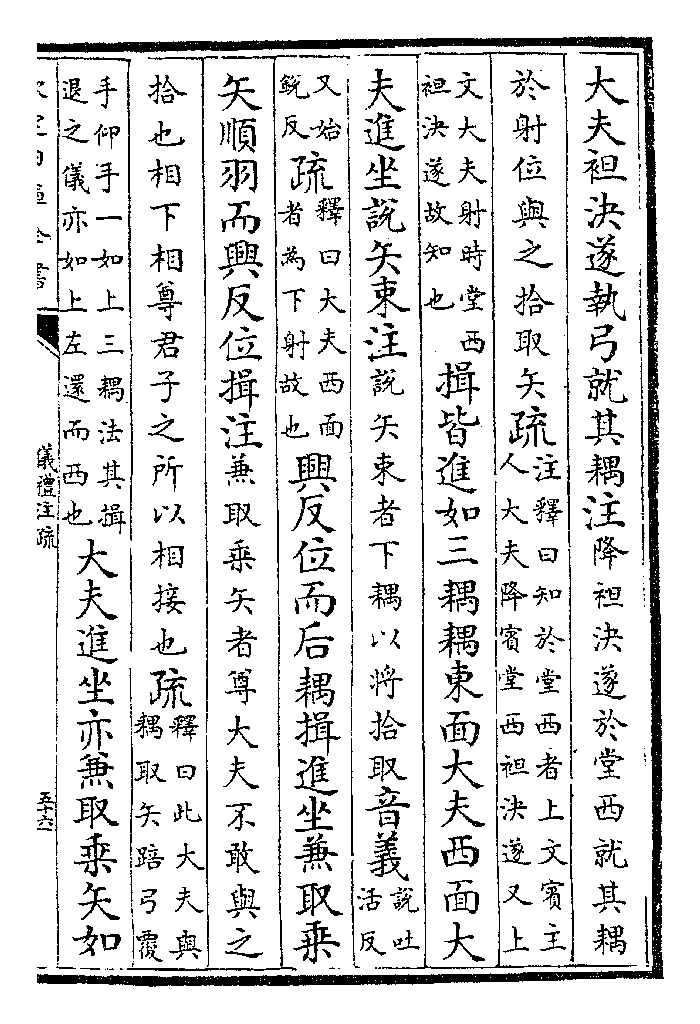 大夫袒決遂執弓就其耦注降袒決遂於堂西就其耦
於射位與之拾取矢疏注釋曰知於堂西者上文賓主
人大夫降賓堂西袒決遂又上
文大夫射時堂西
袒決遂故知也
揖皆進如三耦耦東面大夫西面大
夫進坐説矢束注説矢束者下耦以將拾取音義説吐
活反
又始
鋭反
疏釋曰大夫西面
者為下射故也
興反位而后耦揖進坐兼取乗
矢順羽而興反位揖注兼取乗矢者尊大夫不敢與之
拾也相下相尊君子之所以相接也疏釋曰此大夫與
耦取矢踣弓覆
手仰手一如上三耦法其揖
退之儀亦如上左還而西也
大夫進坐亦兼取乗矢如
儀禮注疏
五十六